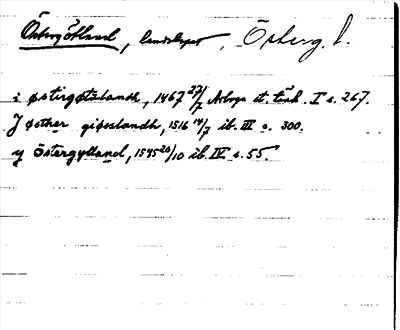 Östergötland, landskap, Österg. l.
i østirgøtzlandh, 1467 27/7 Arboga st. tänk. I s. 267.
J østher giøsslandh, 1516 14/7 ib. III s. 300.
y Östergyttland, 1545 20/10 ib. IV s. 55.